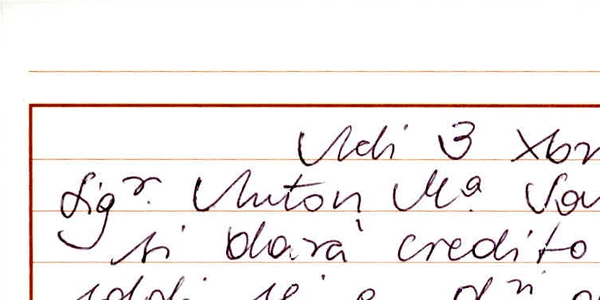 Adi 3 Xbr
Sigr. Anton Ma. Sau
si darà credito